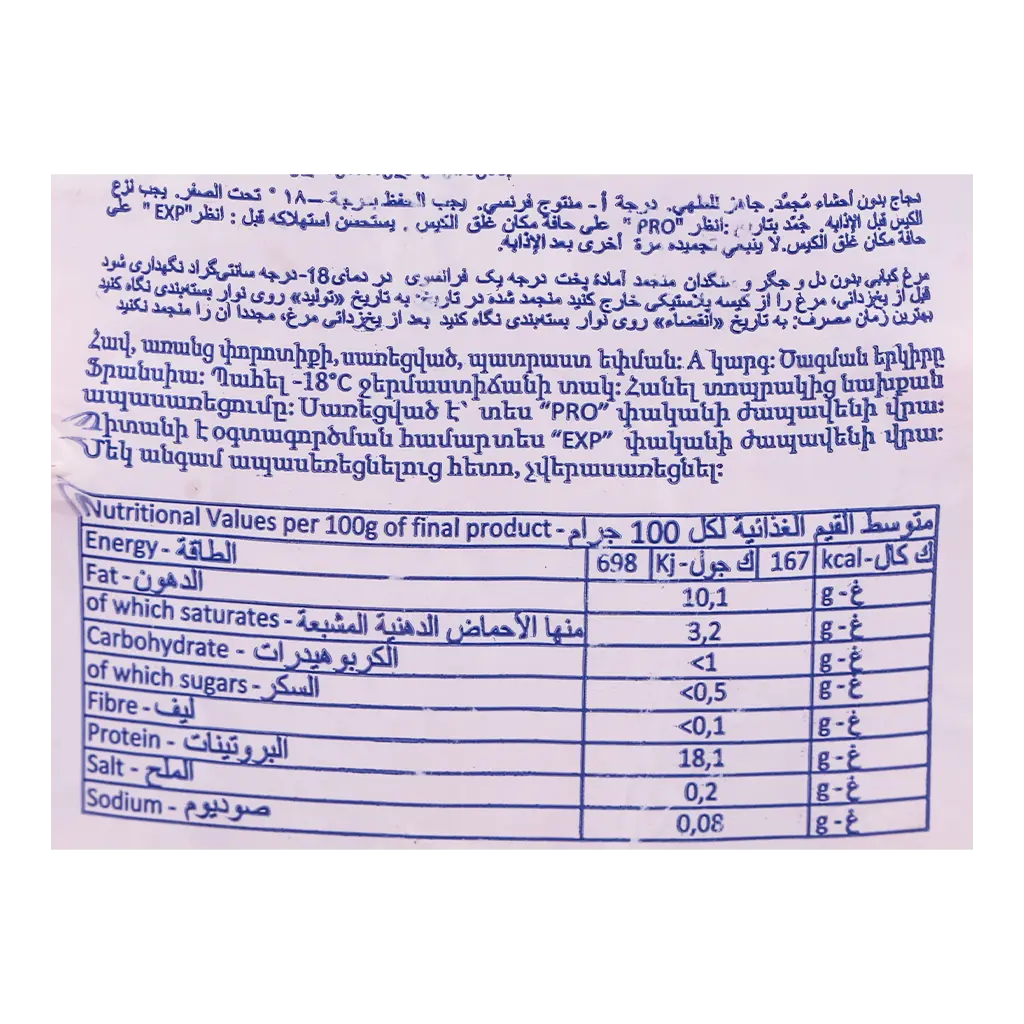 دجاج بدون أحشاء مُجمَّد. جاهز للطهي. درجة أ - منتوج فرنسي. يجب الحفظ بدرجة –١٨ ° تحت الصفر. يجب نزع
الكيس قبل الإذابة. جُمّد بتاريخ :انظر "PRO" على حافة مكان غلق الكيس . يستحسن استهلاكه قبل : انظر"EXP" على
حافة مكان غلق الكيس.لا ينبغي تجميده مرة أخرى بعد الإذابة.
مرغ کبابی بدون دل و جگر و سنگدان منجمد آمادهٔ پخت درجه یک فرانسوی در دمای 18-درجه سانتی‌گراد نگهداری شود
قبل از یخ‌زدائی، مرغ را از کیسه پلاستیکی خارج کنید منجمد شده در تاریخ: به تاریخ «تولید» روی نوار بسته‌بندی نگاه کنید
بهترین زمان مصرف: به تاریخ «انقضاء» روی نوار بسته‌بندی نگاه کنید بعد از یخ‌زدائی مرغ، مجددا آن را منجمد نکنید
Հավ, առանց փորոտիքի, սառեցված, պատրաստ եփման: A կարգ: Ծագման երկիրը
Ֆրանսիա: Պահել -18°C ջերմաստիճանի տակ: Հանել տոպրակից նախքան
ապասառեցումը: Սառեցված է՝ տես “PRO” փականի ժապավենի վրա:
Պիտանի է օգտագործման համար տես “EXP” փականի ժապավենի վրա:
Մեկ անգամ ապասեռեցնելուց հետո, չվերասառեցնել:
Nutritional Values per 100g of final product - متوسط القيم الغذائية لكل 100 جرام
Energy - الطاقة 698 Kj - ك جول 167 kcal - ك كال
Fat - الدهون 10,1 g - غ
of which saturates - منها الأحماض الدهنية المشبعة 3,2 g - غ
Carbohydrate - الكربوهيدرات <1 g - غ
of which sugars - السكر <0,5 g - غ
Fibre - ليف <0,1 g - غ
Protein - البروتينات 18,1 g - غ
Salt - الملح 0,2 g - غ
Sodium - صوديوم 0,08 g - غ